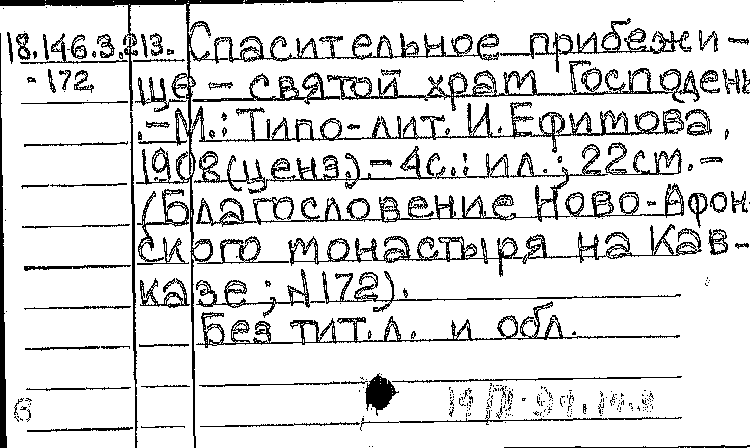 18.146.3.213. Спасительное прибежи-
-172 ще – святой храм Господень
.–М.: Типо-лит. И.Ефимова,
1908(ценз.).–4с.: ил.; 22см.–
(Благословение Ново-Афон-
ского монастыря на Кав-
казе; №172).
Без тит.л. и обл.